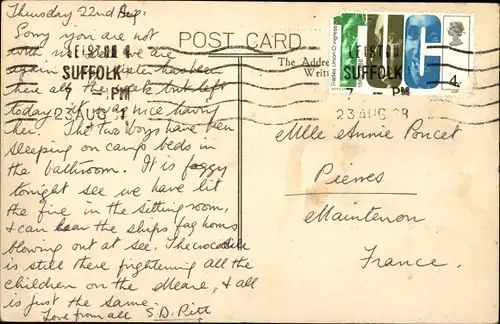 Thursday 22nd Aug.
Sorry you are not
with us here we are
again. Kate has been
here all the week but left
today it was nice having
her. The two boys have been
sleeping on camp beds in
the bathroom. It is foggy
tonight see we have lit
the fire in the sitting room,
& can hear the ships fog horns
blowing out at see. The crocodile
is still there frightening all the
children on the Meare, & all
is just the same.
Love from all S.D. Pitt
POST CARD
The Addre
Writi
LEISTON
SUFFOLK
PM
23 AUG
Trades Union Congress
1868-1968
TUC
4d
LEISTON
SUFFOLK
7 PM
23 AUG
Mlle Annie Poncet
Pierres
Maintenon
France.